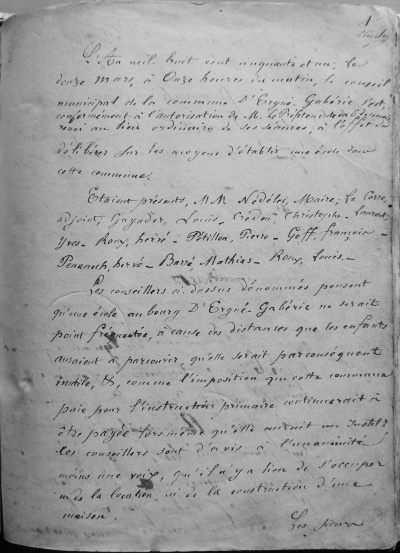 1
L'An mil huit cent cinquante et un, le
douze Mars, à Onze heures du matin, le conseil
municipal de la commune D'Ergué-Gabéric s'est,
conformément à l'autorisation de M. Le Préfet
réuni au lieu ordinaire de ses séances, à l'effet de
délibérer sur les moyens d'établir une école dans
cette commune.
Etaient présents, MM Nédélec, Maire; Le Corre,
adjoint, Gayader, Louis, Crédou, Christophe - Laurent
Yves - Rouz, hervé - Pétillon, Pierre - Goff, françois -
Penanech, hervé - Barré, Mathias - Rouz, Louis -
Les conseillers ci-dessus dénommés pensent
qu'une école au bourg D'Ergué-Gabéric ne serait
point fréquentée, à cause des distances que les enfants
auraient à parcourir, qu'elle serait par conséquent
inutile, &, comme l'imposition que cette commune
paie pour l'instruction primaire continuerait à
être payée lors même qu'elle aurait un
les conseillers sont d'avis à l'unanimité
moins une voix, qu'il n'y a lieu de s'occuper
ni de la location, ni de la construction d'une
maison.
Les